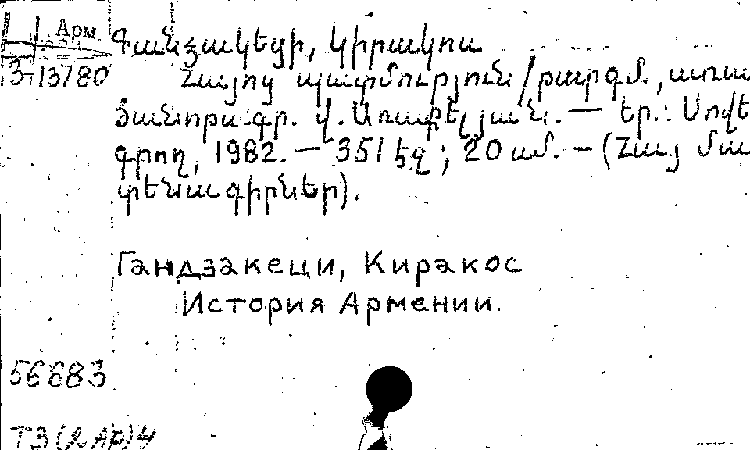 Арм.
3-13780
Գանձակեցի, Կիրակոս
Հայոց պատմություն / թարգմ., առա
ջանորա գր. Վ. Առաքելյանն. — Եր.: Սովե
գրող, 1982. — 351 էջ; 20 սմ. — (Հայ մա
տենագիրներ).
Гандзакеци, Киракос
История Армении.
56683